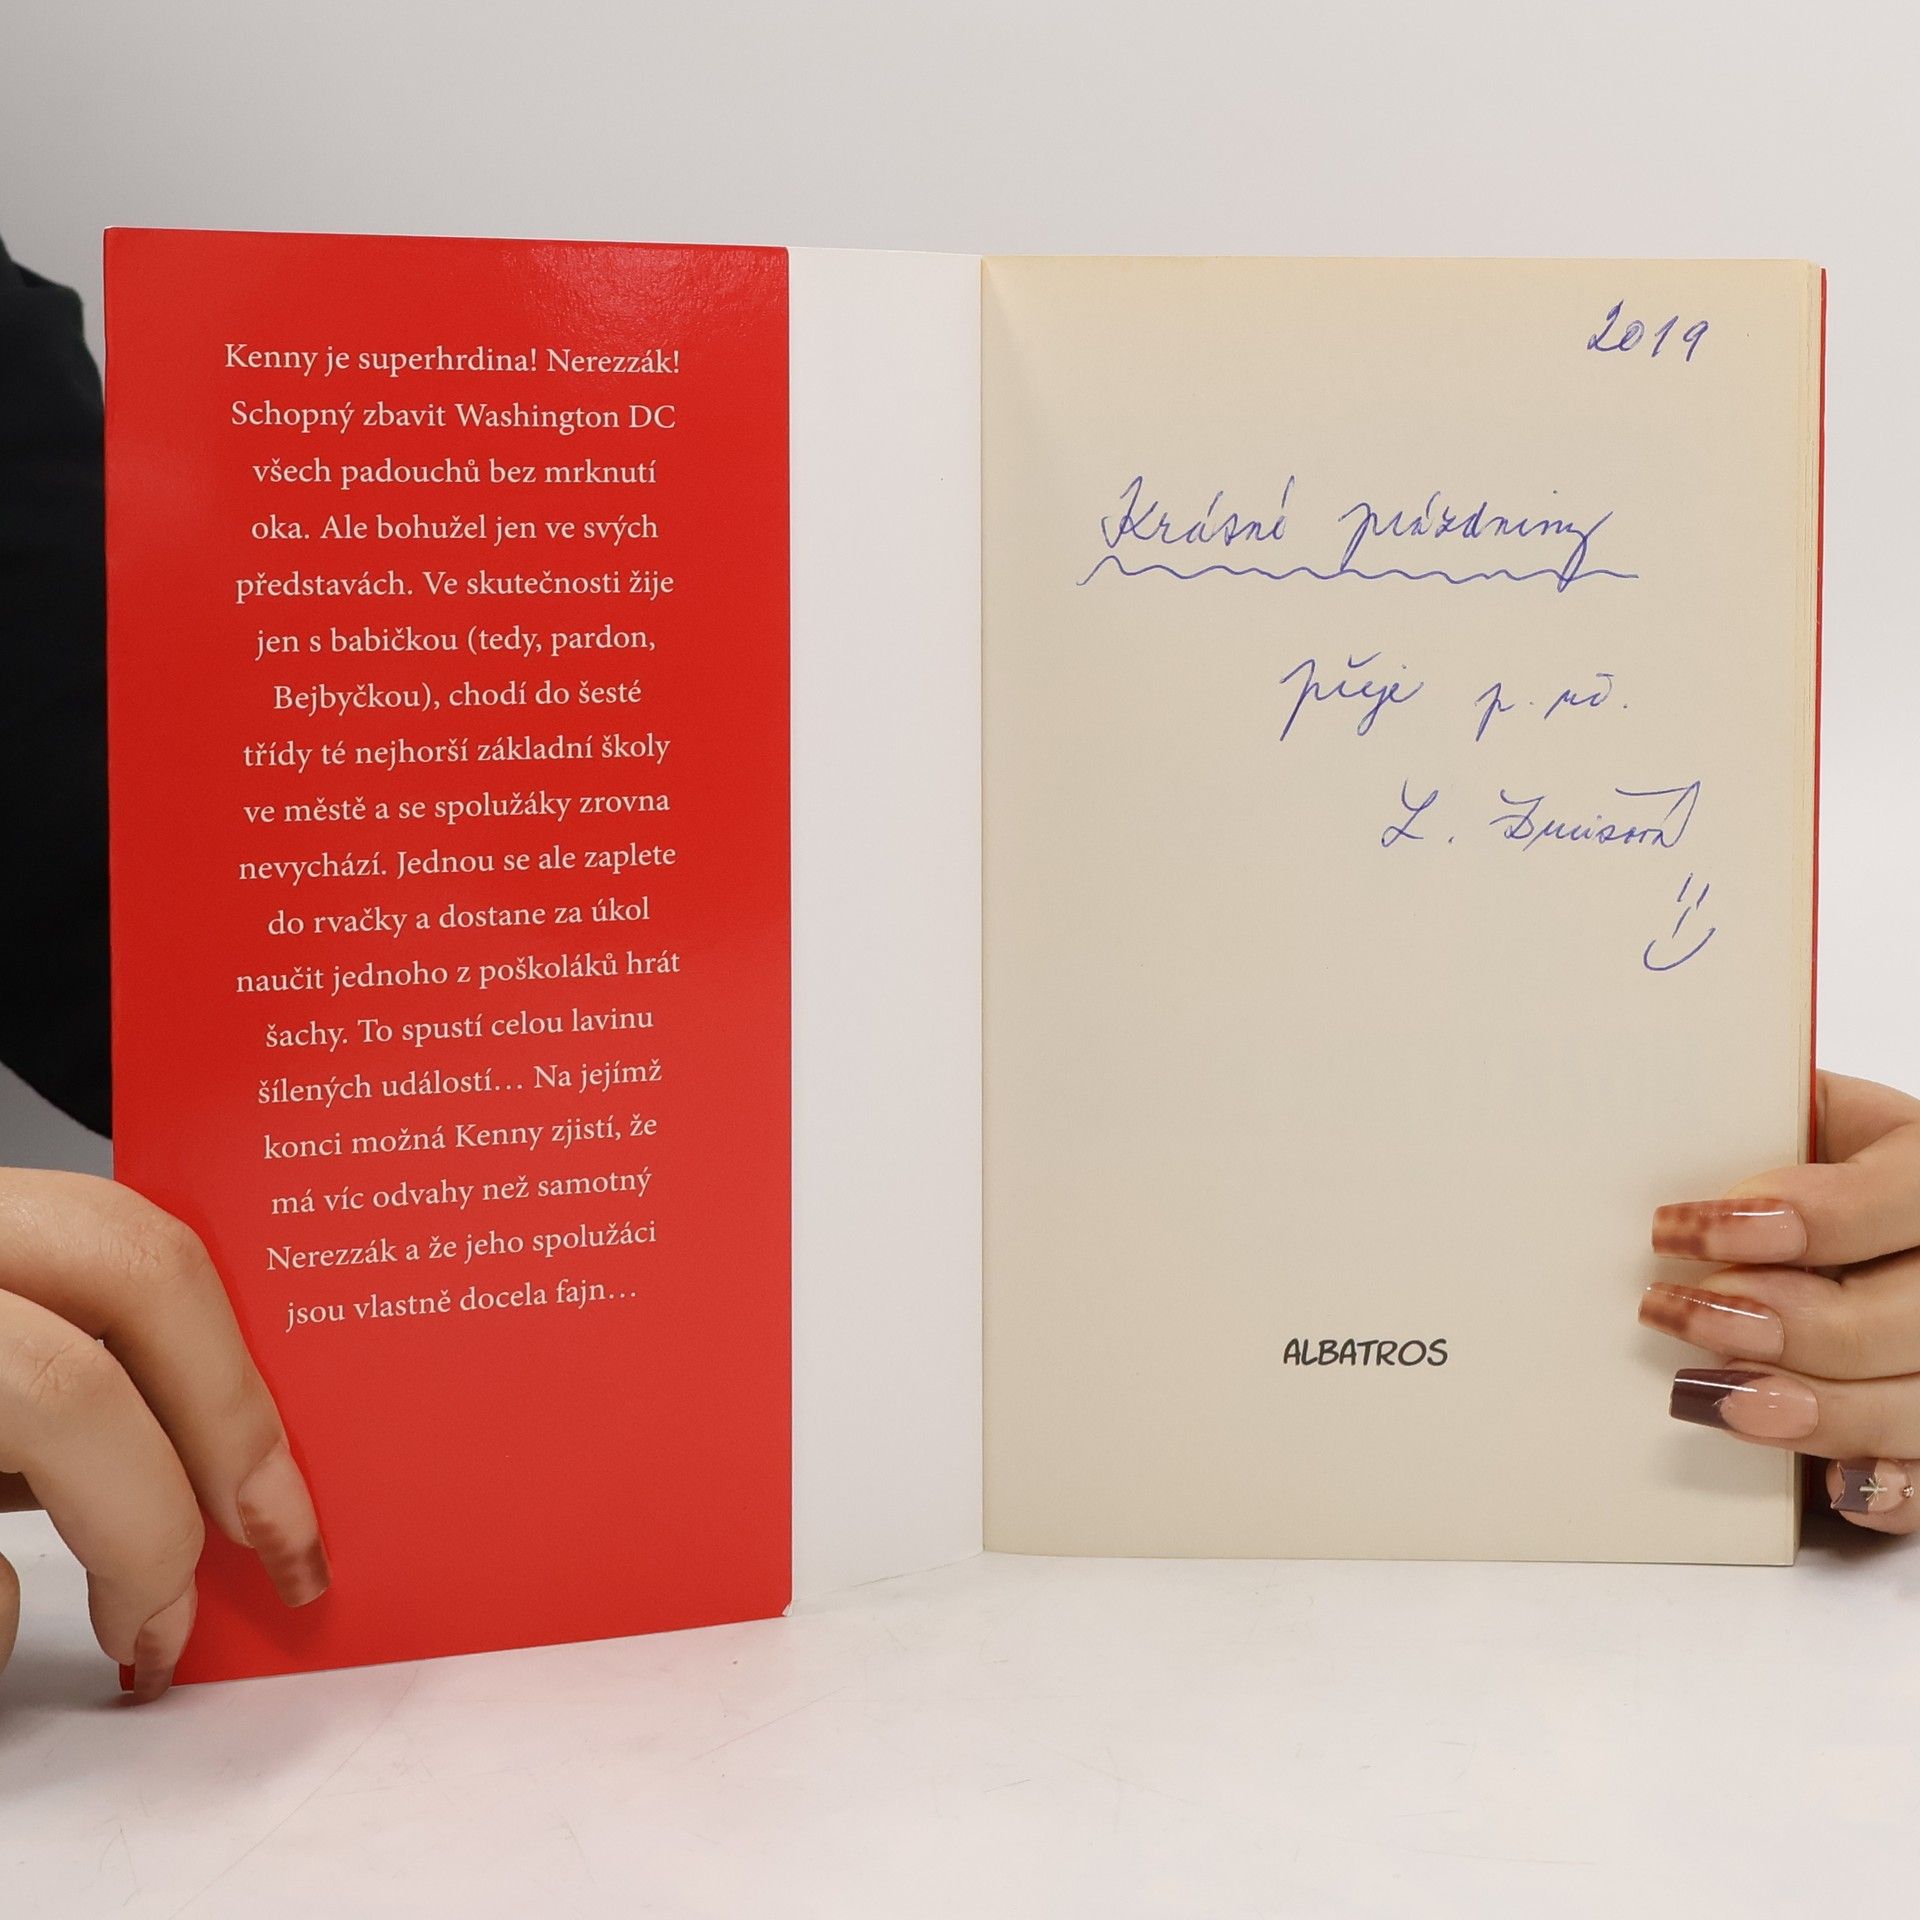 Kenny je superhrdina! Nerezzák!
Schopný zbavit Washington DC
všech padouchů bez mrknutí
oka. Ale bohužel jen ve svých
představách. Ve skutečnosti žije
jen s babičkou (tedy, pardon,
Bejbyčkou), chodí do šesté
třídy té nejhorší základní školy
ve městě a se spolužáky zrovna
nevychází. Jednou se ale zaplete
do rvačky a dostane za úkol
naučit jednoho z poškoláků hrát
šachy. To spustí celou lavinu
šílených událostí… Na jejímž
konci možná Kenny zjistí, že
má víc odvahy než samotný
Nerezzák a že jeho spolužáci
jsou vlastně docela fajn…
2019
Krásné prázdniny
přeje p. uč.
L.
ALBATROS